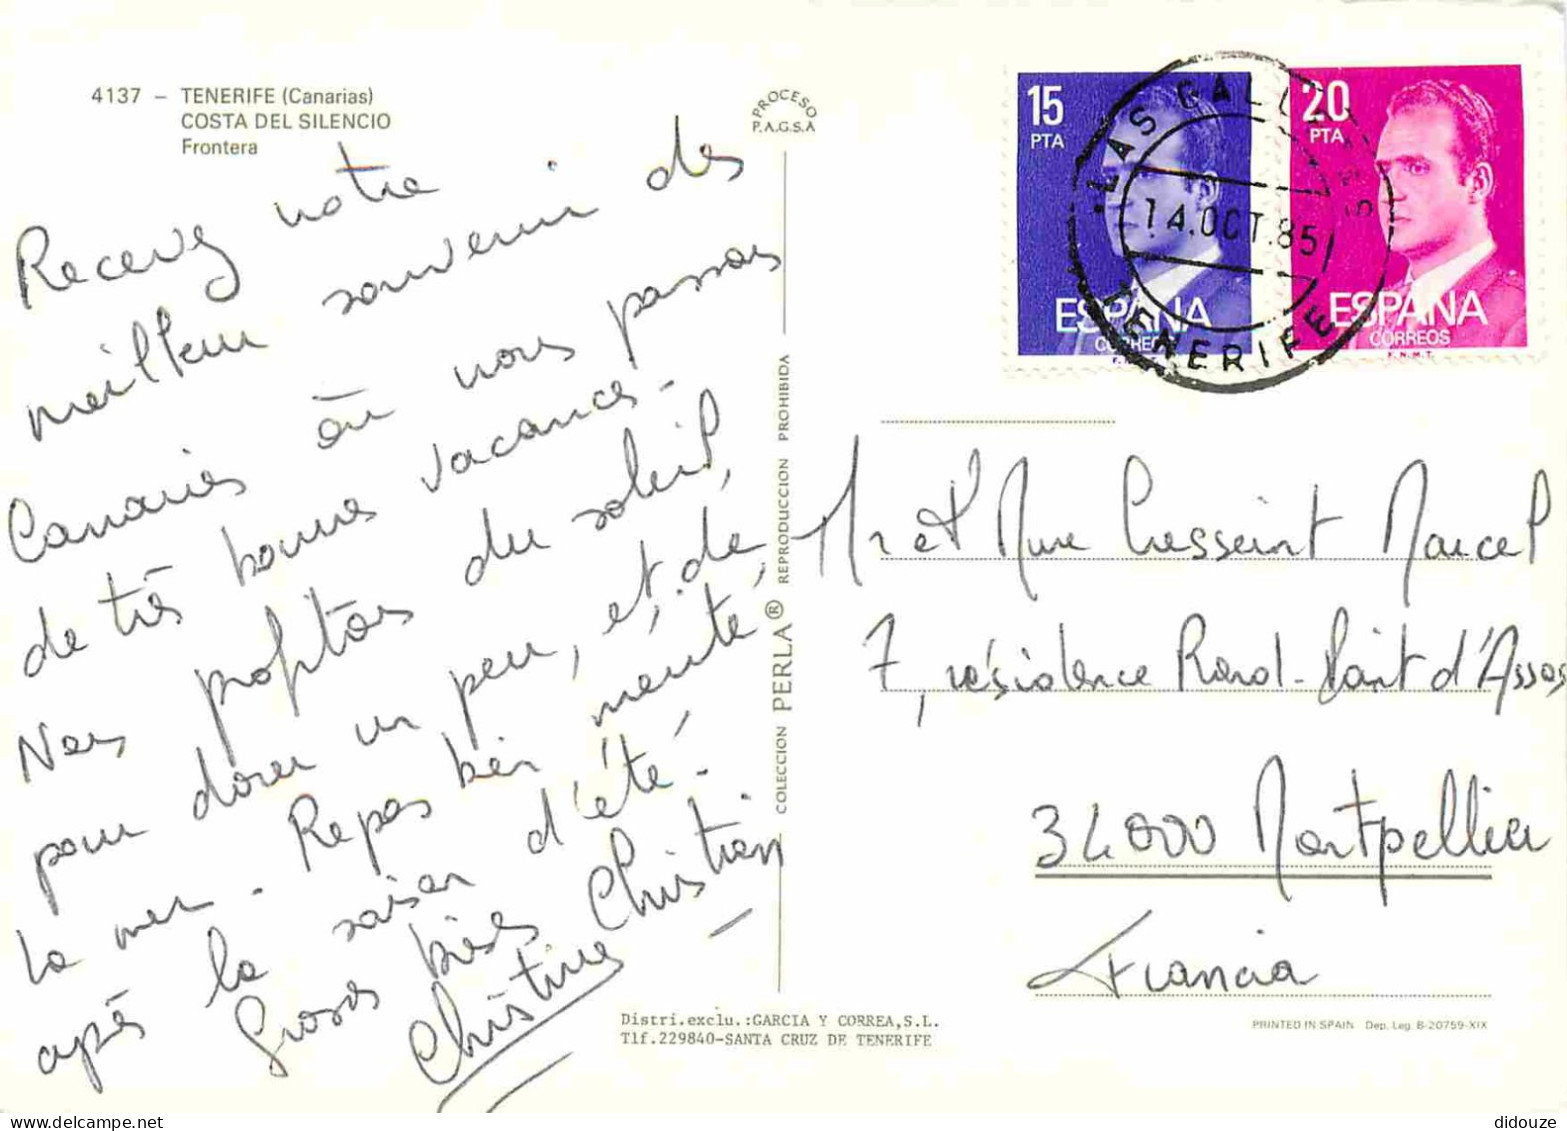 4137 – TENERIFE (Canarias)
COSTA DEL SILENCIO
Frontera
Recevez notre
meilleur souvenir des
Canaries où nous passons
de très bonnes vacances.
Nous profitons du soleil,
pour dorer un peu, et, de
la mer. Repos bien mérité,
après la saison d'été.
Grosses bises
Christian
Christine
PROCESO
P.A.G.S.A
COLECCION PERLA® REPRODUCCION PROHIBIDA
Distri.exclu.:GARCIA Y CORREA,S.L.
Tlf.229840-SANTA CRUZ DE TENERIFE
15
PTA
ESPAÑA
CORREOS
20
PTA
ESPAÑA
CORREOS
F.N.M.T.
14.OCT.85
TENERIFE
Mr et Mme Cresseint Marcel
7, résidence Rond-Point d'Assas
34000 Montpellier
Francia
PRINTED IN SPAIN Dep. Leg. B-20759-XIX
didouze